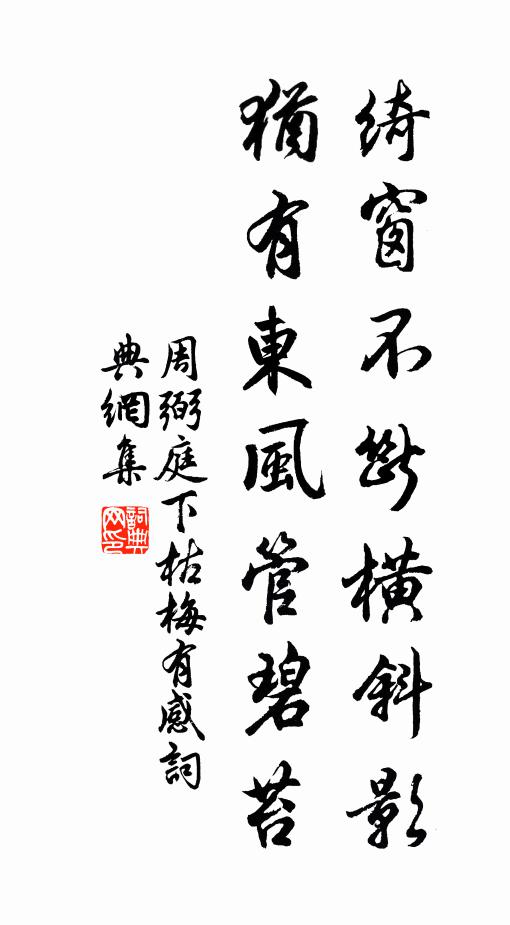 綺窗不斷橫斜影
猶有東風管碧苔
周弼庭下枯梅有感詞
典網集
詞典網印